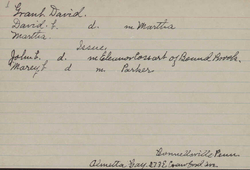 Grant David.
David t. d. m Martha
Martha
Issue,
John t. d. m Eleanor Cossart of Bound Brook.
Marey t d m. Parker
Connellsville Penn.
Almetta Gay 273 E Crawford Ave